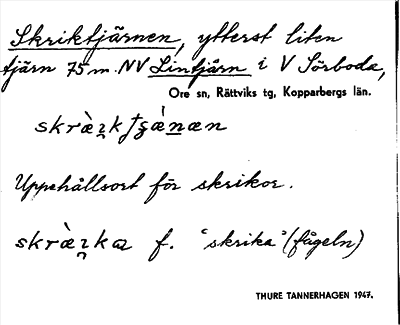 Skriktjärnen, ytterst liten
tjärn 75 m. NV Lintjärn i V Sörboda,
Ore sn, Rättviks tg, Kopparbergs län.
Uppehållsort för skrikor.
f. "skrika" (fågeln)
THURE TANNERHAGEN 1947.